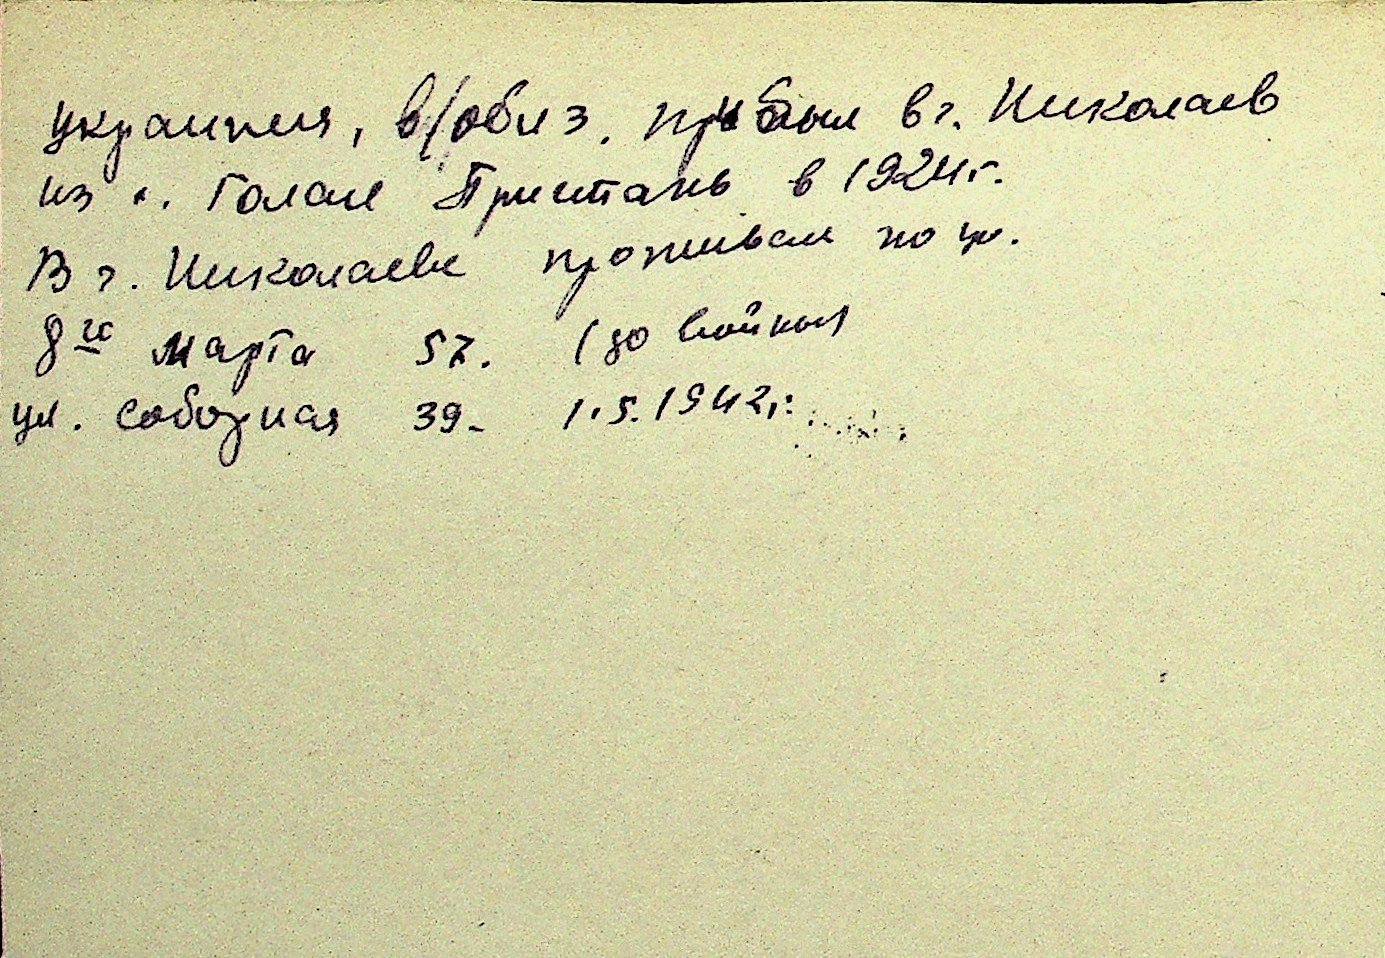 украинец, в/обяз. прибыл в г. Николаев
из с. Голая Пристань в 1924г.
В г. Николаеве проживал по ул.
8го Марта 57. (до войны)
ул. Соборная 39. 1.5.1942г.